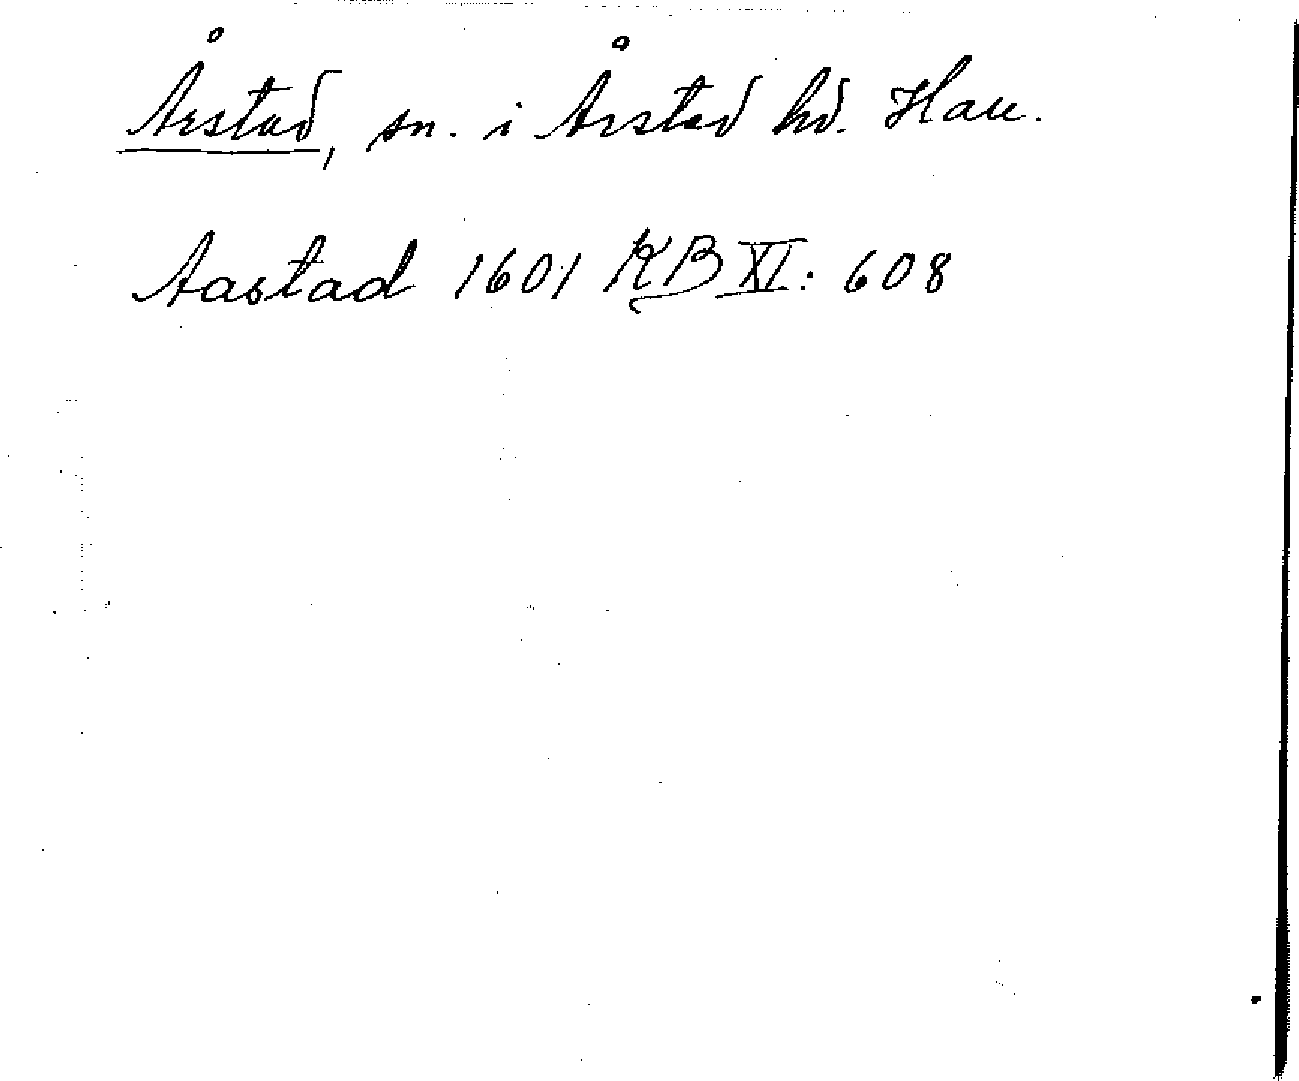 Årstad, sn. i Årstad hd. Hall.
Aastad 1601 KB XI: 608